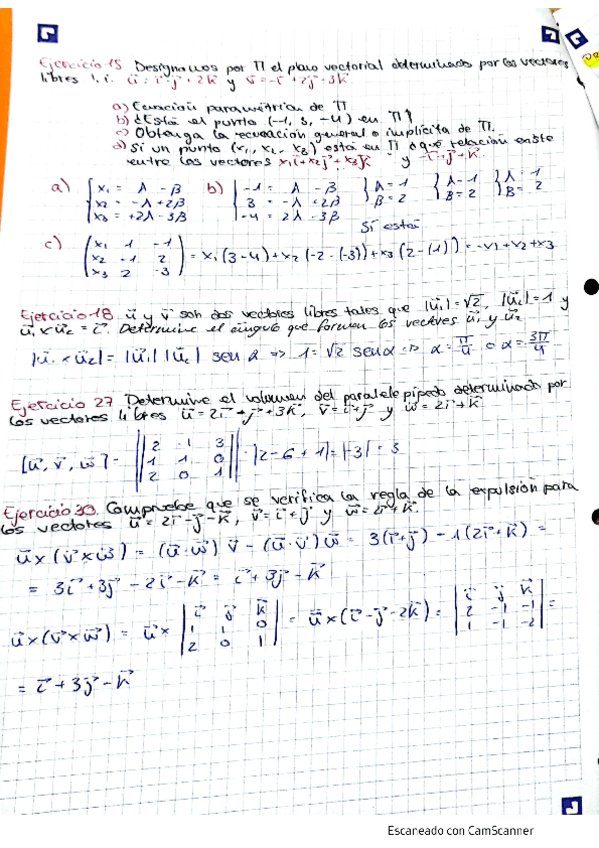 Ejercicio 15 Designamos por Π el plano vectorial determinado por los vectores
libres l.i. u⃗ = i⃗ - j⃗ + 2k⃗ y v⃗ = -i⃗ + 2j⃗ - 3k⃗
a) Ecuación paramétrica de Π
b) ¿Está el punto (-1, 3, -4) en Π?
c) Obtenga la ecuación general o implícita de Π.
d) Si un punto (x₁, x₂, x₃) está en Π ¿qué relación existe
entre los vectores x₁i⃗ + x₂j⃗ + x₃k⃗ y -i⃗ + j⃗ + k⃗
a) { x₁ = λ - β b) { -1 = λ - β { λ = 1 { λ = 1 { λ = 1
x₂ = -λ + 2β 3 = -λ + 2β β = 2 β = 2 β = 2
x₃ = +2λ - 3β -4 = 2λ - 3β
Sí está
c) ( x₁ 1 -1
x₂ -1 2
x₃ 2 -3 ) = x₁(3-4) + x₂(-2-(-3)) + x₃(2-(1)) = -x₁ + x₂ + x₃
Ejercicio 18 u⃗ y v⃗ son dos vectores libres tales que |u⃗₁| = √2, |u⃗₂| = 1 y
u⃗₁ × u⃗₂ = i⃗. Determine el ángulo que forman los vectores u⃗₁ y u⃗₂
|u⃗₁ × u⃗₂| = |u⃗₁| |u⃗₂| sen α => 1 = √2 sen α => α = π/4 o α = 3π/4
Ejercicio 27 Determine el volumen del paralelepípedo determinado por
los vectores libres u⃗ = 2i⃗ - j⃗ + 3k⃗, v⃗ = i⃗ + j⃗ y w⃗ = 2i⃗ + k⃗
[u⃗, v⃗, w⃗] = || 2 -1 3
1 1 0
2 0 1 || = |2 - 6 + 1| = |-3| = 3
Ejercicio 30 Compruebe que se verifica la regla de la expulsión para
los vectores u⃗ = 2i⃗ - j⃗ - k⃗, v⃗ = i⃗ + j⃗ y w⃗ = 2i⃗ + k⃗.
u⃗ × (v⃗ × w⃗) = (u⃗·w⃗) v⃗ - (u⃗·v⃗) w⃗ = 3(i⃗ + j⃗) - 1(2i⃗ + k⃗) =
= 3i⃗ + 3j⃗ - 2i⃗ - k⃗ = i⃗ + 3j⃗ - k⃗
u⃗ × (v⃗ × w⃗) = u⃗ × | i⃗ j⃗ k⃗
1 1 0
2 0 1 | = u⃗ × (i⃗ - j⃗ - 2k⃗) = | i⃗ j⃗ k⃗
2 -1 -1
1 -1 -2 | =
= i⃗ + 3j⃗ - k⃗
Escaneado con CamScanner